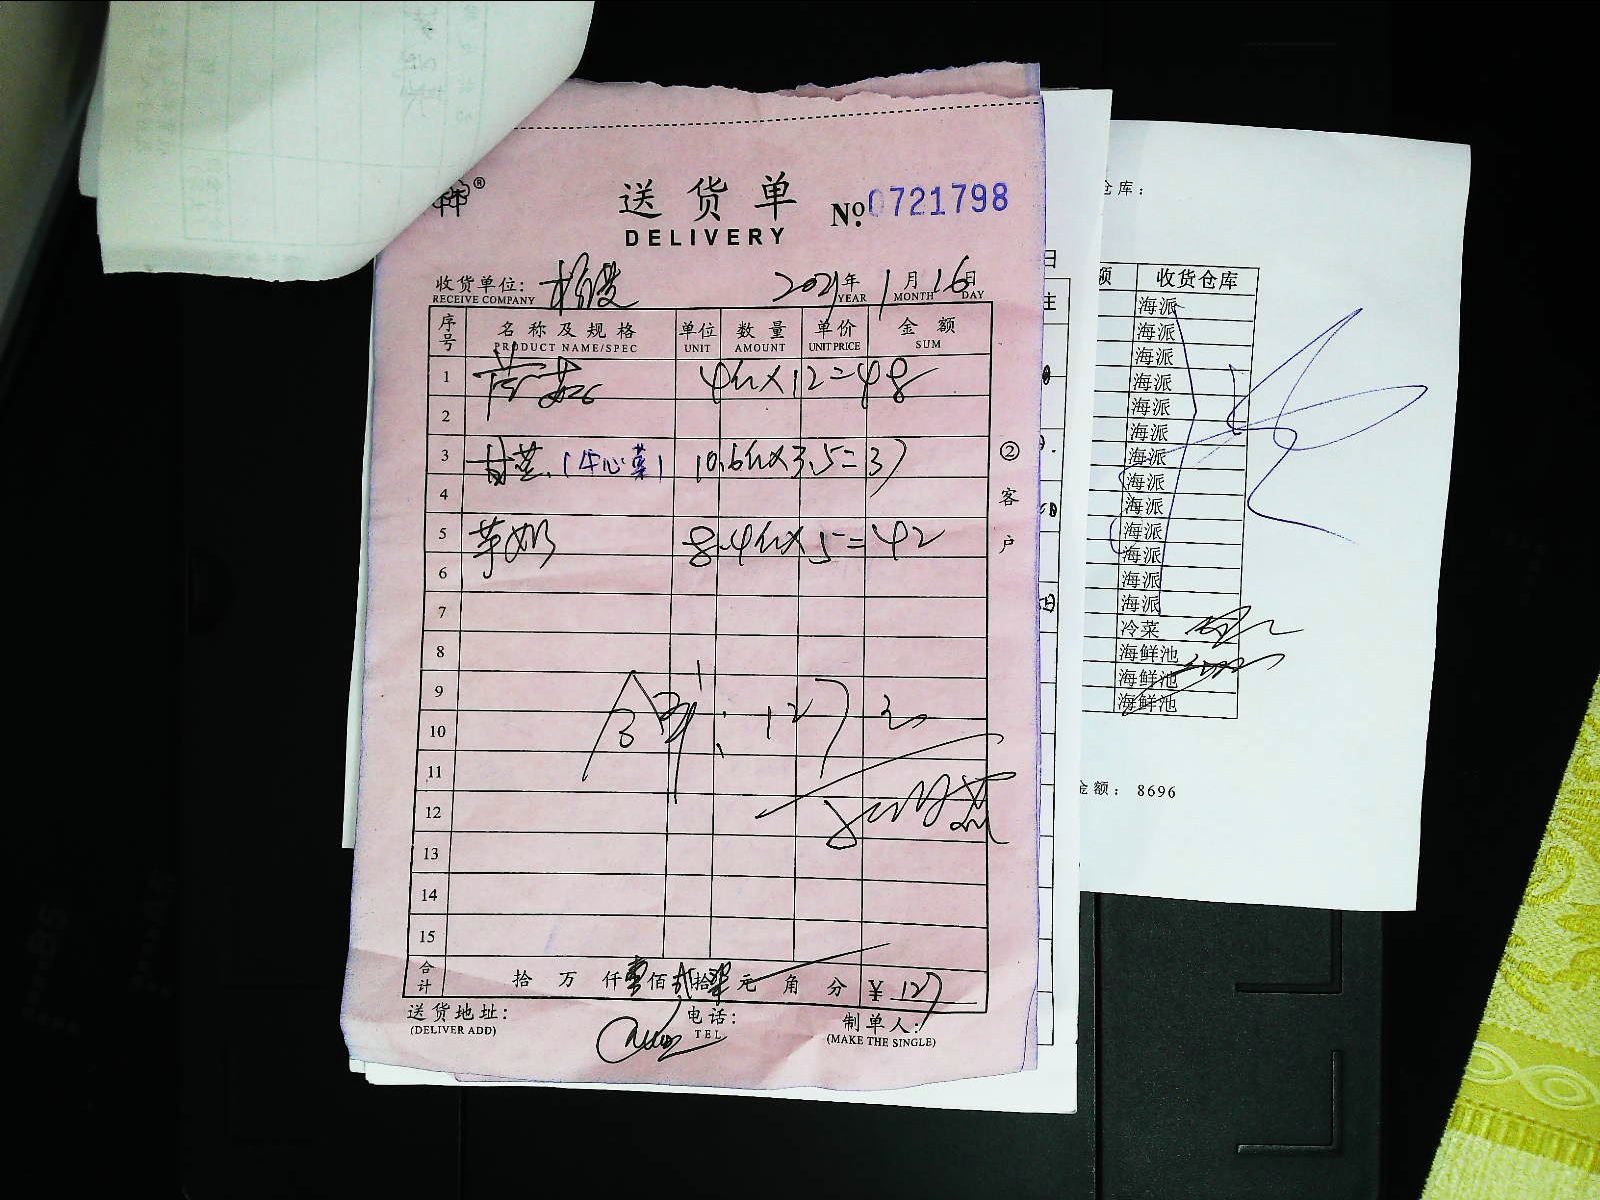 送货单
DELIVERY
No. 0721798
收货单位:
RECEIVE COMPANY
2021年 1月 16日
YEAR MONTH DAY
序号 名称及规格 单位 数量 单价 金额
PRODUCT NAME/SPEC UNIT AMOUNT UNIT PRICE SUM
1 4斤×12=48
2
3 甘芝.(牛心菜) 10.6斤×3.5=37
4
5 8.4斤×5=42
6
7
8
9
10 合计:127元
11
12
13
14
15
合计 拾 万 仟壹佰贰拾柒元 角 分 ¥ 127
送货地址: 电话: 制单人:
(DELIVER ADD) TEL (MAKE THE SINGLE)
②客户
仓库:
日
额 收货仓库
注
海派
海派
海派
海派
海派
海派
海派
海派
海派
海派
海派
海派
海派
冷菜
海鲜池
海鲜池
海鲜池
金额: 8696